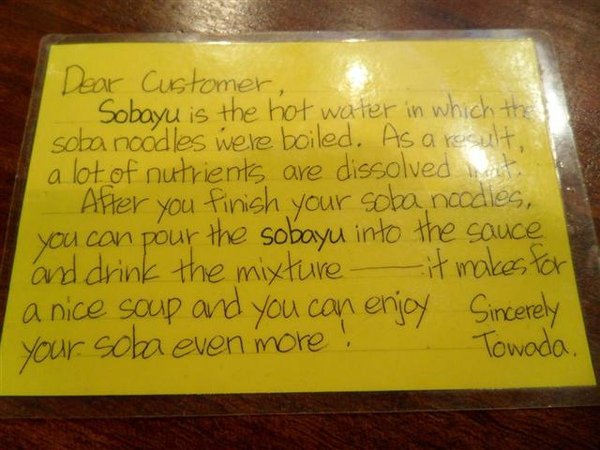 Dear Customer,
Sobayu is the hot water in which the
soba noodles were boiled. As a result,
a lot of nutrients are dissolved in it.
After you finish your soba noodles,
you can pour the sobayu into the sauce
and drink the mixture — it makes for
a nice soup and you can enjoy
your soba even more!
Sincerely
Towada.